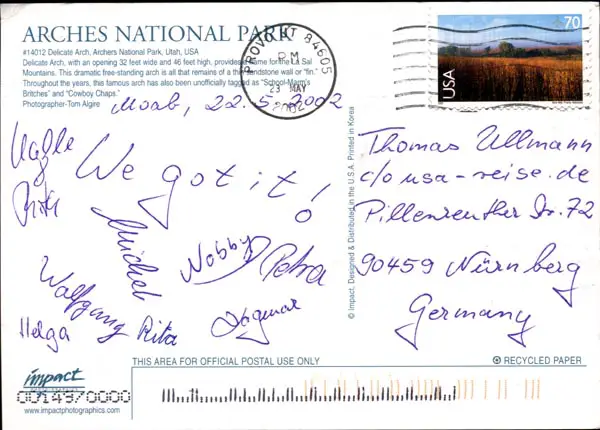 ARCHES NATIONAL PARK
#14012 Delicate Arch, Archers National Park, Utah, USA
Delicate Arch, with an opening 32 feet wide and 46 feet high, provides a frame for the La Sal
Mountains. This dramatic free-standing arch is all that remains of a thin sandstone wall or "fin."
Throughout the years, this famous arch has also been unofficially tagged as "School-Marm's
Britches" and "Cowboy Chaps."
Photographer-Tom Algire
PROVO UT 84605
PM
23 MAY
2002
70
USA
Moab, 22.5.2002
We got it!
Michel
Nobby
Petra
Wolfgang
Helga
Rita
Dagmar
© Impact, Designed & Distributed in the U.S.A. Printed in Korea
Thomas Ullmann
c/o usa-reise.de
Pillenreuther Str. 72
90459 Nürnberg
Germany
THIS AREA FOR OFFICIAL POSTAL USE ONLY
RECYCLED PAPER
impact
www.impactphotographics.com